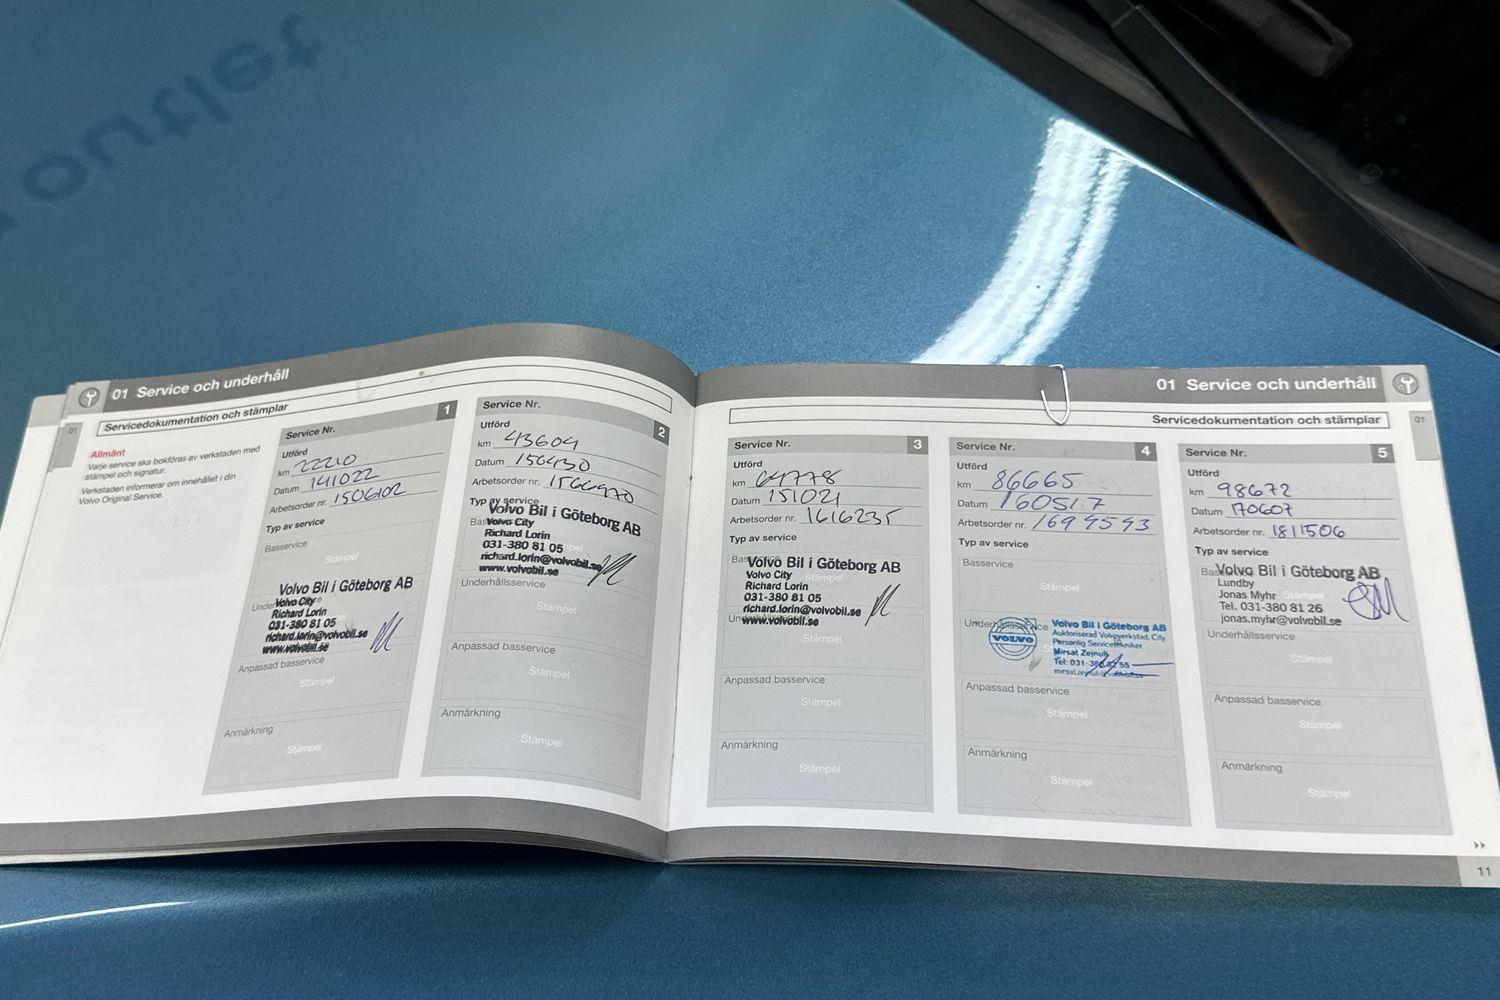 01 Service och underhåll
Servicedokumentation och stämplar
01
Allmänt
Varje service ska bokföras av verkstaden med
stämpel och signatur.
Verkstaden informerar om innehållet i din
Volvo Original Service.
Service Nr. 1
Utförd
km 22210
Datum 141022
Arbetsorder nr. 1506102
Typ av service
Basservice
Stämpel
Volvo Bil i Göteborg AB
Volvo City
Richard Lorin
031-380 81 05
richard.lorin@volvobil.se
www.volvobil.se
Anpassad basservice
Stämpel
Anmärkning
Stämpel
Service Nr. 2
Utförd
km 43604
Datum 150430
Arbetsorder nr. 1566970
Typ av service
Volvo Bil i Göteborg AB
Volvo City
Richard Lorin
031-380 81 05
richard.lorin@volvobil.se
www.volvobil.se
Underhållsservice
Stämpel
Anpassad basservice
Stämpel
Anmärkning
Stämpel
01 Service och underhåll
Servicedokumentation och stämplar
01
Service Nr. 3
Utförd
km 64778
Datum 151021
Arbetsorder nr. 1616235
Typ av service
Volvo Bil i Göteborg AB
Volvo City
Stämpel
Richard Lorin
031-380 81 05
richard.lorin@volvobil.se
www.volvobil.se
Stämpel
Anpassad basservice
Stämpel
Anmärkning
Stämpel
Service Nr. 4
Utförd
km 86665
Datum 160517
Arbetsorder nr. 1694593
Typ av service
Basservice
Stämpel
Underhållsservice
VOLVO
Volvo Bil i Göteborg AB
Auktoriserad Volvoverkstad, City
Personlig Servicetekniker
Mirsat Zejnuli
Tel: 031-380 82 55
Anpassad basservice
Stämpel
Anmärkning
Stämpel
Service Nr. 5
Utförd
km 98672
Datum 170607
Arbetsorder nr. 1811506
Typ av service
Volvo Bil i Göteborg AB
Lundby
Jonas Myhr Stämpel
Tel. 031-380 81 26
jonas.myhr@volvobil.se
Underhållsservice
Stämpel
Anpassad basservice
Stämpel
Anmärkning
Stämpel
11